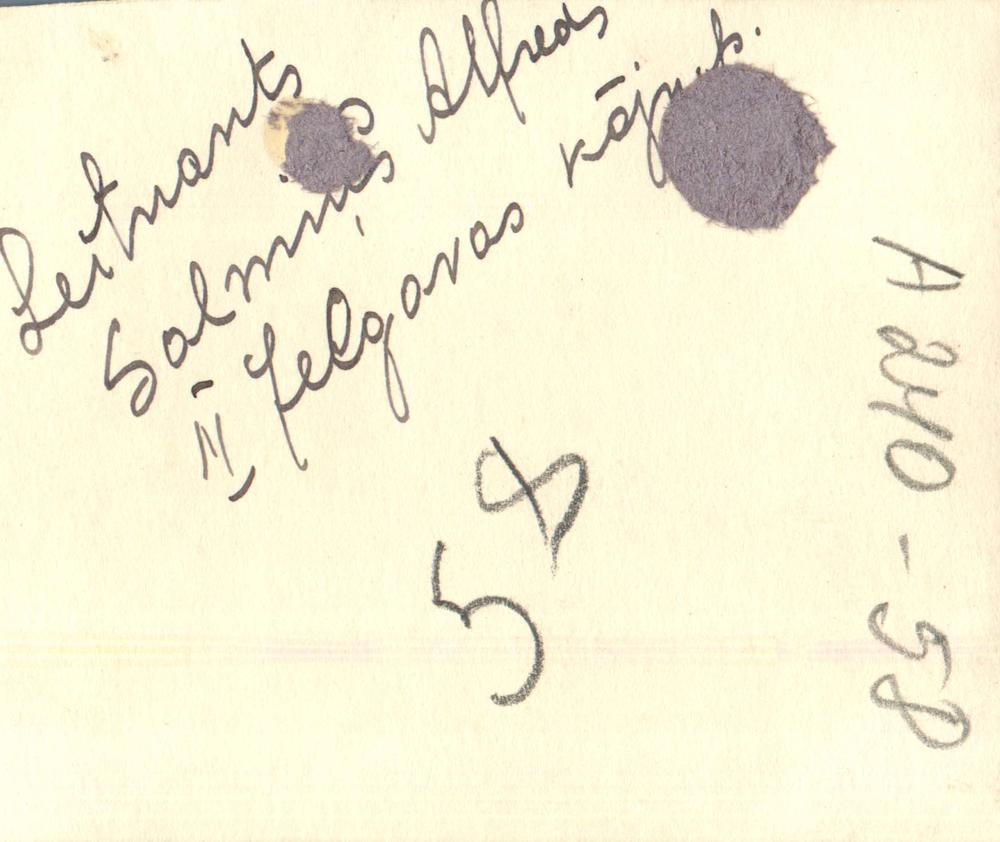 Leitnants
Salmiņš Alfreds
II Jelgavas kājn. p.
58
A 240 - 58